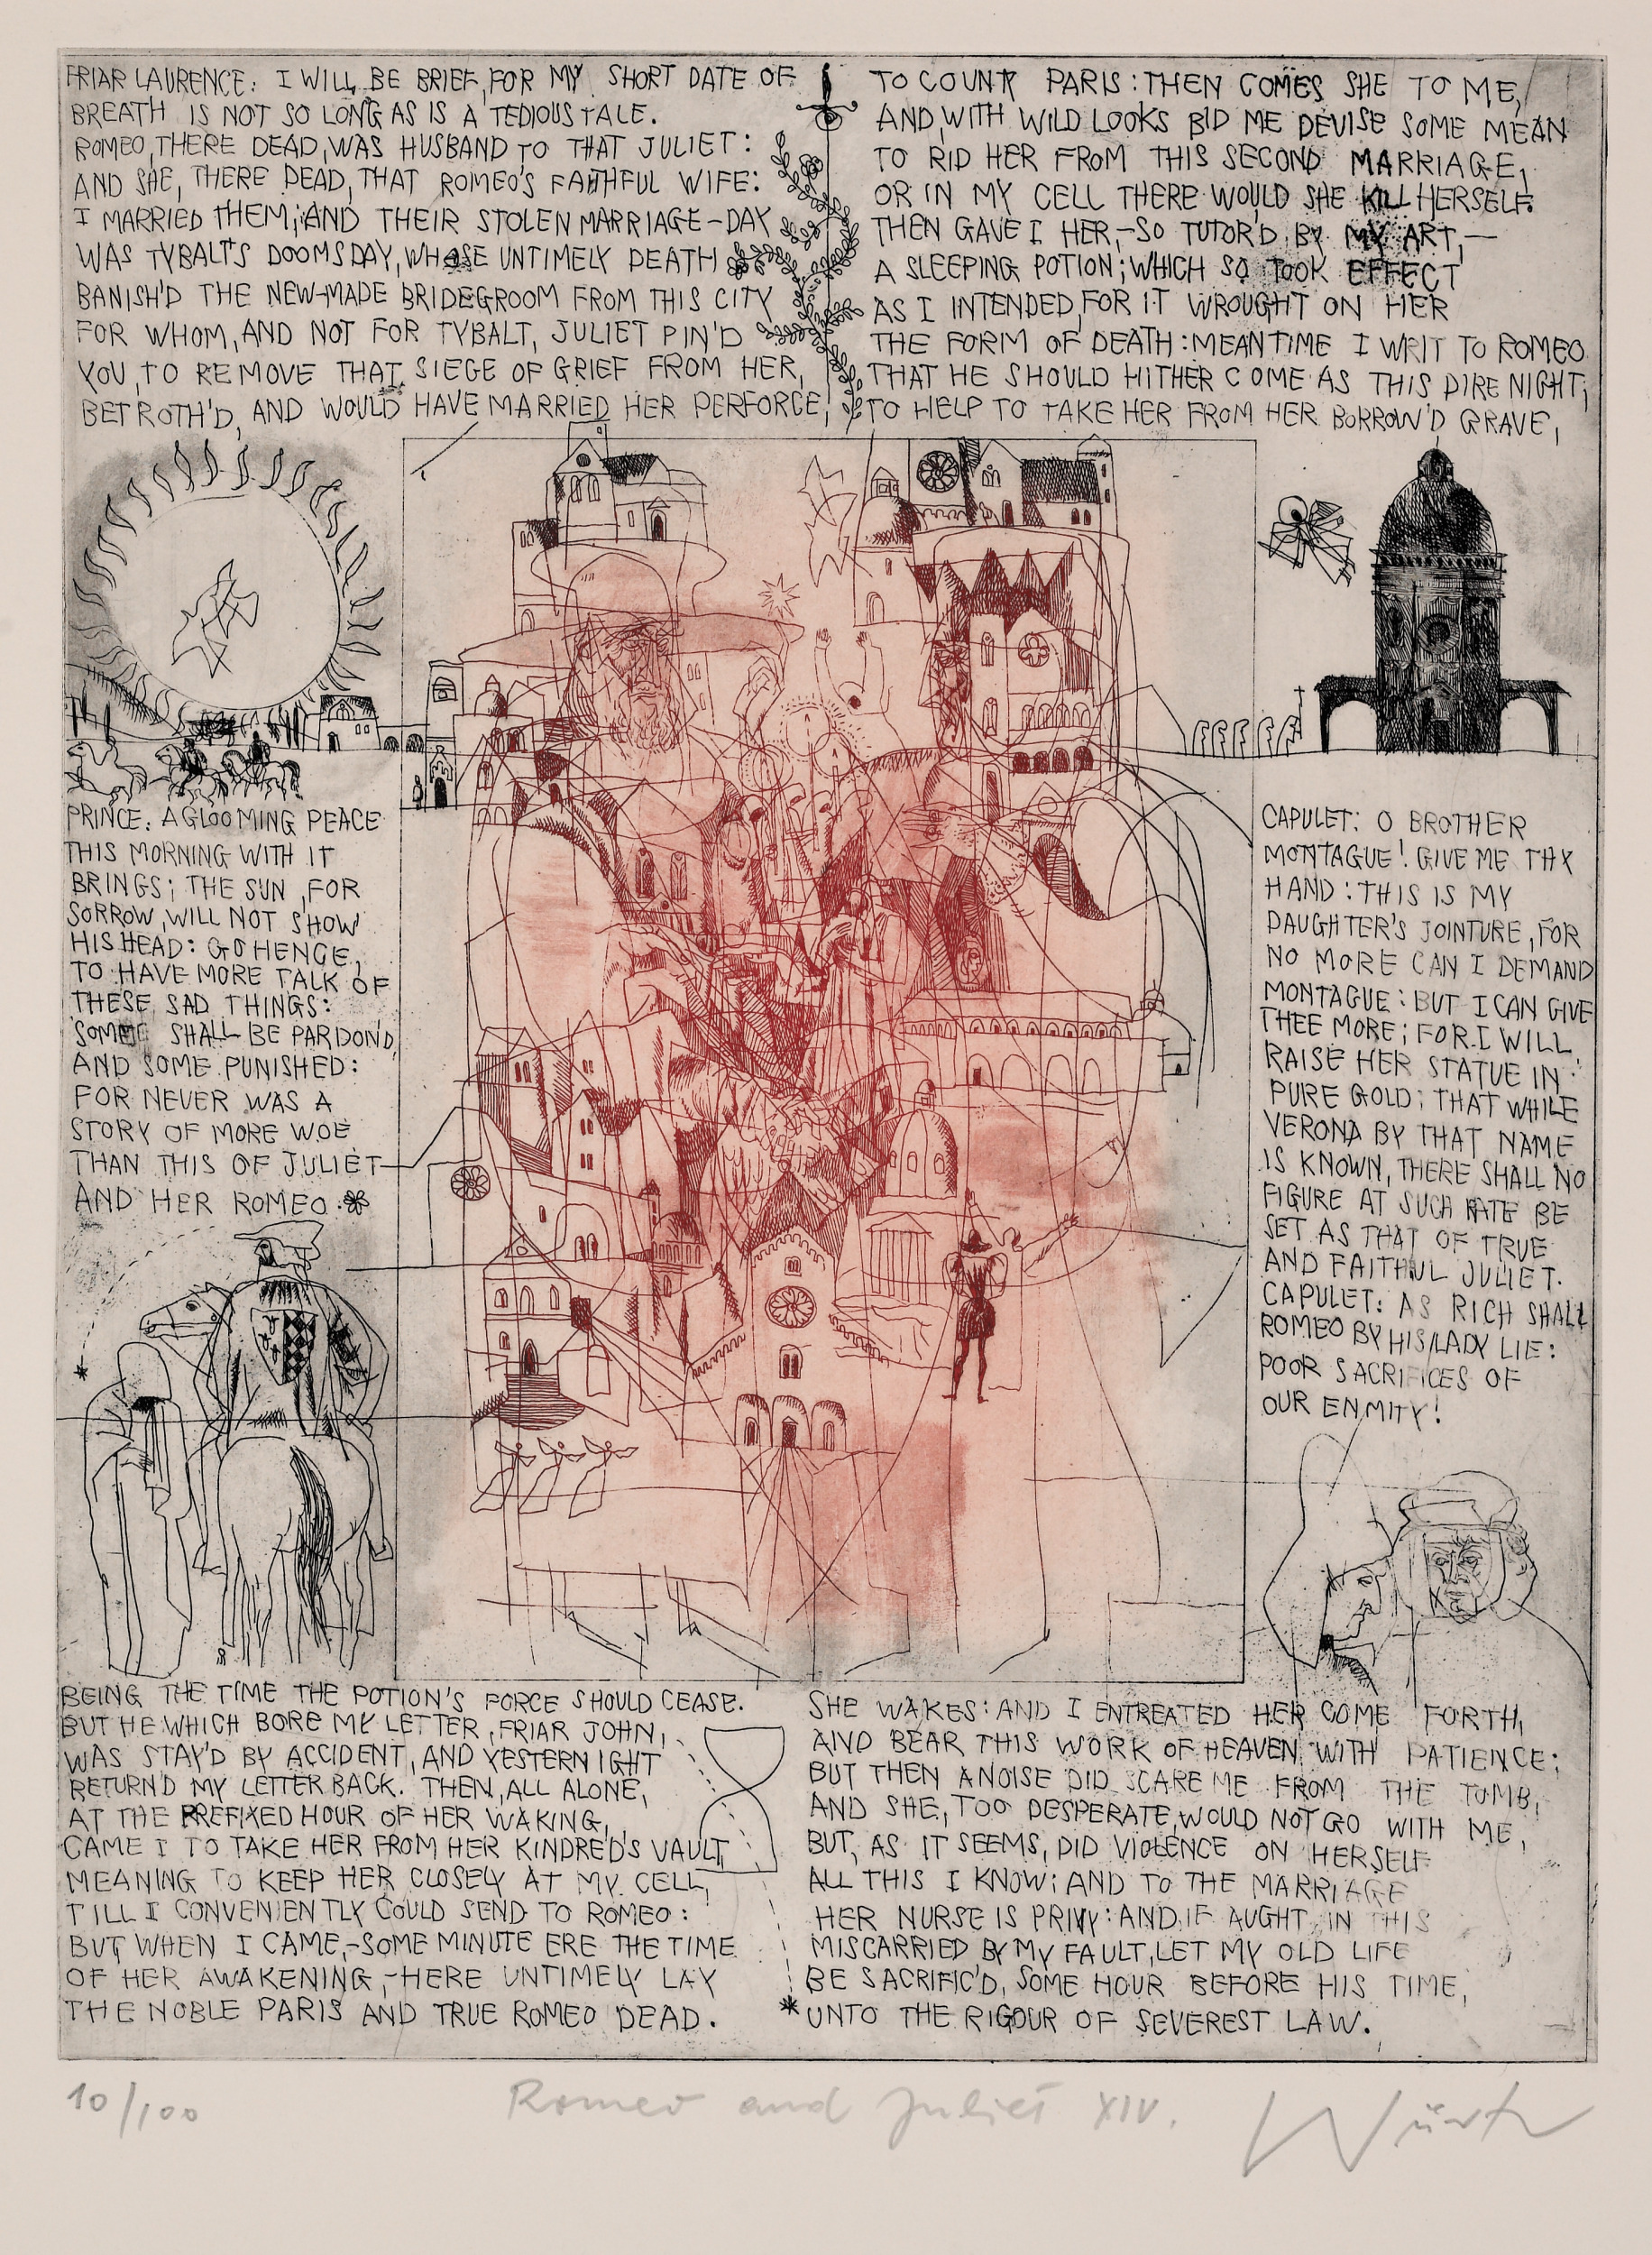 FRIAR LAURENCE: I WILL BE BRIEF, FOR MY SHORT DATE OF
BREATH IS NOT SO LONG AS IS A TEDIOUS TALE.
ROMEO, THERE DEAD, WAS HUSBAND TO THAT JULIET:
AND SHE, THERE DEAD, THAT ROMEO'S FAITHFUL WIFE:
I MARRIED THEM; AND THEIR STOLEN MARRIAGE-DAY
WAS TYBALT'S DOOMSDAY, WHOSE UNTIMELY DEATH
BANISH'D THE NEW-MADE BRIDEGROOM FROM THIS CITY
FOR WHOM, AND NOT FOR TYBALT, JULIET PIN'D
YOU, TO REMOVE THAT SIEGE OF GRIEF FROM HER,
BETROTH'D, AND WOULD HAVE MARRIED HER PERFORCE,
TO COUNT PARIS: THEN COMES SHE TO ME,
AND, WITH WILD LOOKS BID ME DEVISE SOME MEAN
TO RID HER FROM THIS SECOND MARRIAGE,
OR IN MY CELL THERE WOULD SHE KILL HERSELF.
THEN GAVE I HER,-SO TUTOR'D BY MY ART,—
A SLEEPING POTION; WHICH SO TOOK EFFECT
AS I INTENDED, FOR IT WROUGHT ON HER
THE FORM OF DEATH: MEANTIME I WRIT TO ROMEO
THAT HE SHOULD HITHER COME AS THIS DIRE NIGHT,
TO HELP TO TAKE HER FROM HER BORROW'D GRAVE,
PRINCE: A GLOOMING PEACE
THIS MORNING WITH IT
BRINGS; THE SUN, FOR
SORROW, WILL NOT SHOW
HIS HEAD: GO HENCE,
TO HAVE MORE TALK OF
THESE SAD THINGS:
SOME SHALL BE PARDON'D,
AND SOME PUNISHED:
FOR NEVER WAS A
STORY OF MORE WOE
THAN THIS OF JULIET
AND HER ROMEO.
CAPULET: O BROTHER
MONTAGUE! GIVE ME THY
HAND: THIS IS MY
DAUGHTER'S JOINTURE, FOR
NO MORE CAN I DEMAND
MONTAGUE: BUT I CAN GIVE
THEE MORE; FOR I WILL
RAISE HER STATUE IN
PURE GOLD; THAT WHILE
VERONA BY THAT NAME
IS KNOWN, THERE SHALL NO
FIGURE AT SUCH RATE BE
SET AS THAT OF TRUE
AND FAITHFUL JULIET.
CAPULET: AS RICH SHALL
ROMEO BY HIS LADY LIE:
POOR SACRIFICES OF
OUR ENMITY!
BEING THE TIME THE POTION'S FORCE SHOULD CEASE.
BUT HE WHICH BORE MY LETTER, FRIAR JOHN,
WAS STAY'D BY ACCIDENT, AND YESTERNIGHT
RETURN'D MY LETTER BACK. THEN, ALL ALONE,
AT THE PREFIXED HOUR OF HER WAKING,
CAME I TO TAKE HER FROM HER KINDRED'S VAULT,
MEANING TO KEEP HER CLOSELY AT MY CELL,
TILL I CONVENIENTLY COULD SEND TO ROMEO:
BUT WHEN I CAME,-SOME MINUTE ERE THE TIME
OF HER AWAKENING,-HERE UNTIMELY LAY
THE NOBLE PARIS AND TRUE ROMEO DEAD.
SHE WAKES: AND I ENTREATED HER COME FORTH,
AND BEAR THIS WORK OF HEAVEN WITH PATIENCE:
BUT THEN A NOISE DID SCARE ME FROM THE TOMB,
AND SHE, TOO DESPERATE, WOULD NOT GO WITH ME,
BUT, AS IT SEEMS, DID VIOLENCE ON HERSELF
ALL THIS I KNOW; AND TO THE MARRIAGE
HER NURSE IS PRIVY: AND, IF AUGHT IN THIS
MISCARRIED BY MY FAULT, LET MY OLD LIFE
BE SACRIFIC'D, SOME HOUR BEFORE HIS TIME,
UNTO THE RIGOUR OF SEVEREST LAW.
10/100 Romeo and Juliet XIV. Würth